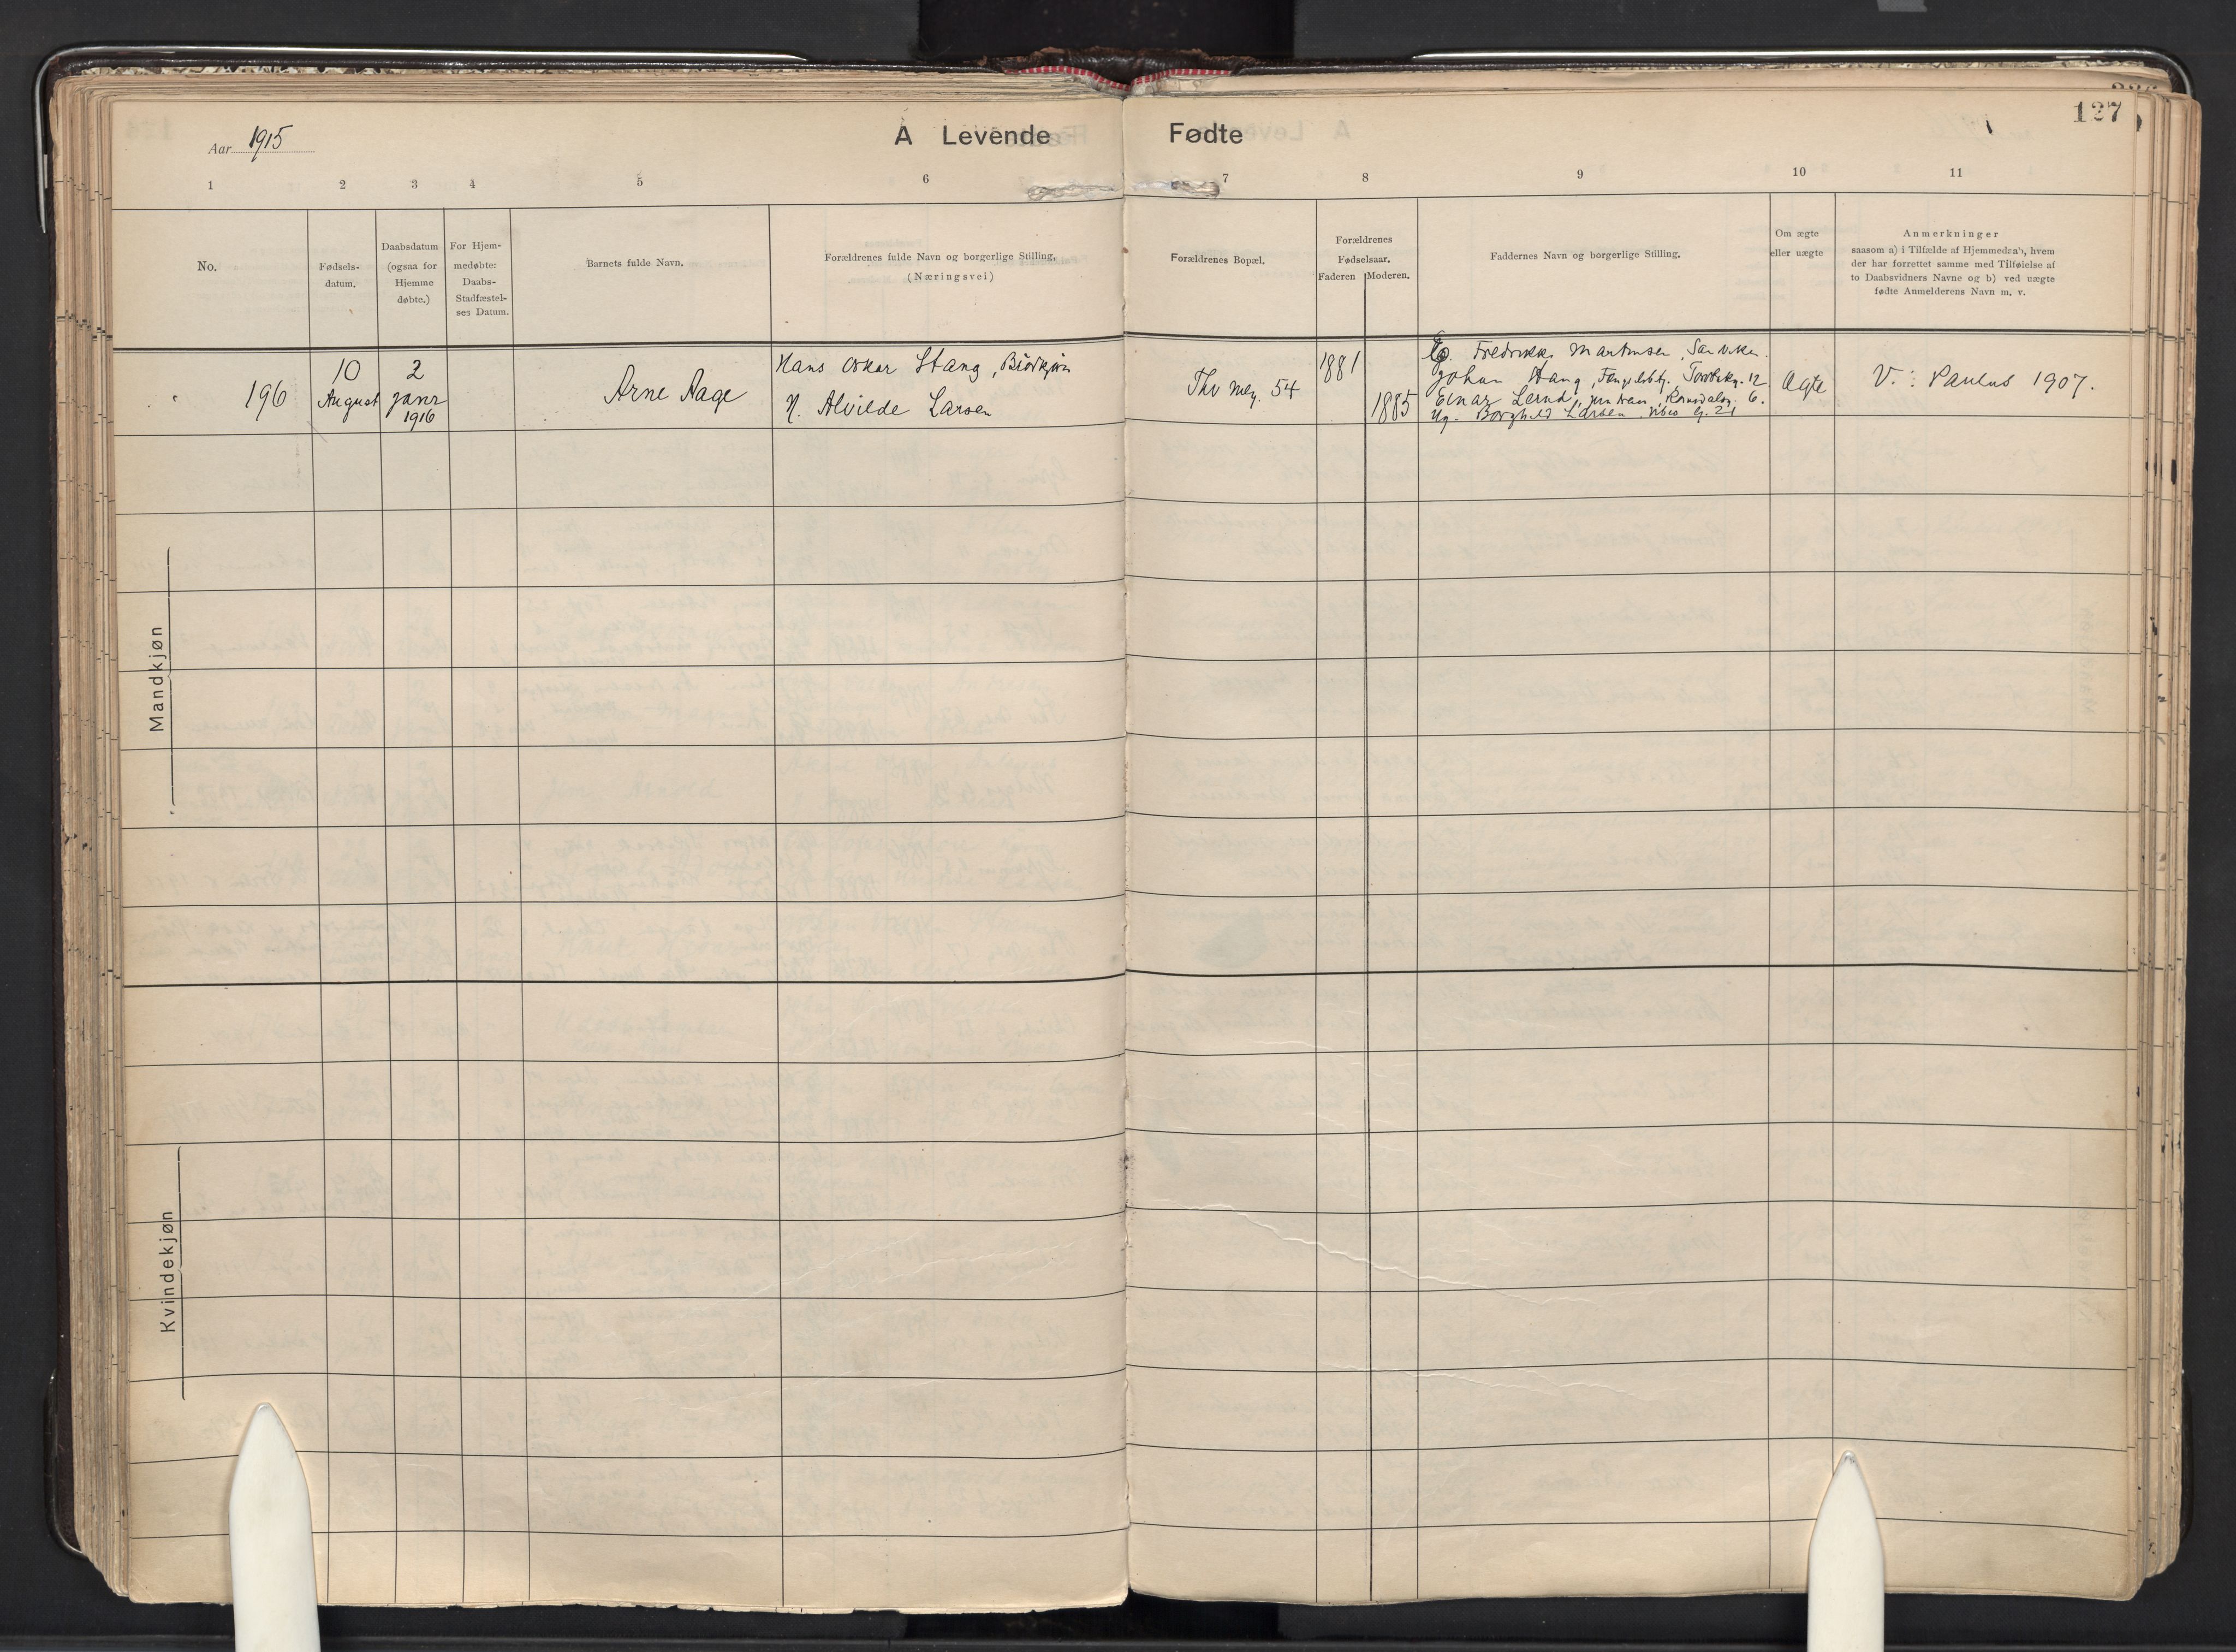 127
Aar 1915
A Levende Fødte
1 2 3 4 5 6 7 8 9 10 11
No.
Fødsels-
datum.
Daabsdatum
(ogsaa for
Hjemme
døbte.)
For Hjem-
medøbte:
Daabs-
Stadfæstel-
ses Datum.
Barnets fulde Navn.
Forældrenes fulde Navn og borgerlige Stilling.
(Næringsvei)
Forældrenes Bopæl.
Forældrenes
Fødselsaar.
Faderen Moderen.
Faddernes Navn og borgerlige Stilling.
Om ægte
eller uægte
Anmerkninger
saasom a) i Tilfælde af Hjemmedaab, hvem
der har forrettet samme med Tilføielse af
to Daabsvidners Navne og b) ved uægte
fødte Anmelderens Navn m. v.
Mandkjøn
196
10
August
2
janr
1916
Arne Aage
Hans Oskar Stang,
H. Alvilde Larsen
Thv Mey. 54
1881
1885
Fredrikke Martinsen, Sandviken.
Johan Stang, 12
Einar 6.
Ug. Borghild Larsen, g. 21
Ægte
V. : Paulus 1907.
Kvindekjøn